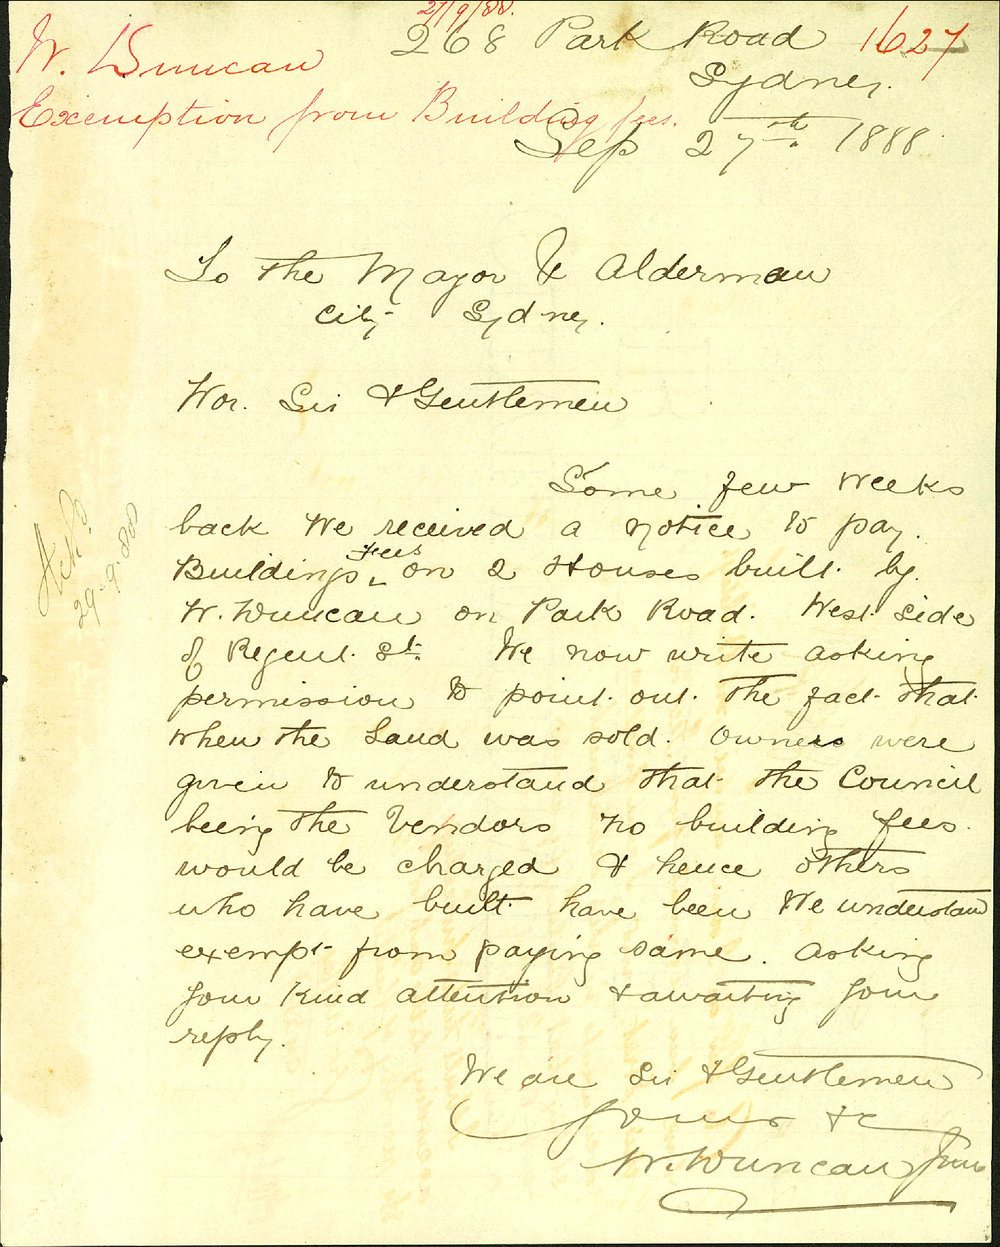 27/9/88.
268 Park Road 1627
W. Duncan
Sydney.
Exemption from Building fees.
Sep 27th. 1888
To the Mayor & Alderman
City Sydney.
Wor. Sir & Gentlemen
Some few weeks
back we received a notice to pay.
Buildings Fees on 2 Houses built by
W. Duncan on Park Road. West side
of Regent St. We now write asking
permission to point out the fact that
when the Land was sold. Owners were
given to understand that the Council
being the Vendors no building fees.
would be charged & hence others
who have built have been we understand
exempt from paying same. asking
your kind attention & awaiting your
reply.
We are Sir & Gentlemen
Yours &c
W. Duncan
Ack.d
29.9.88